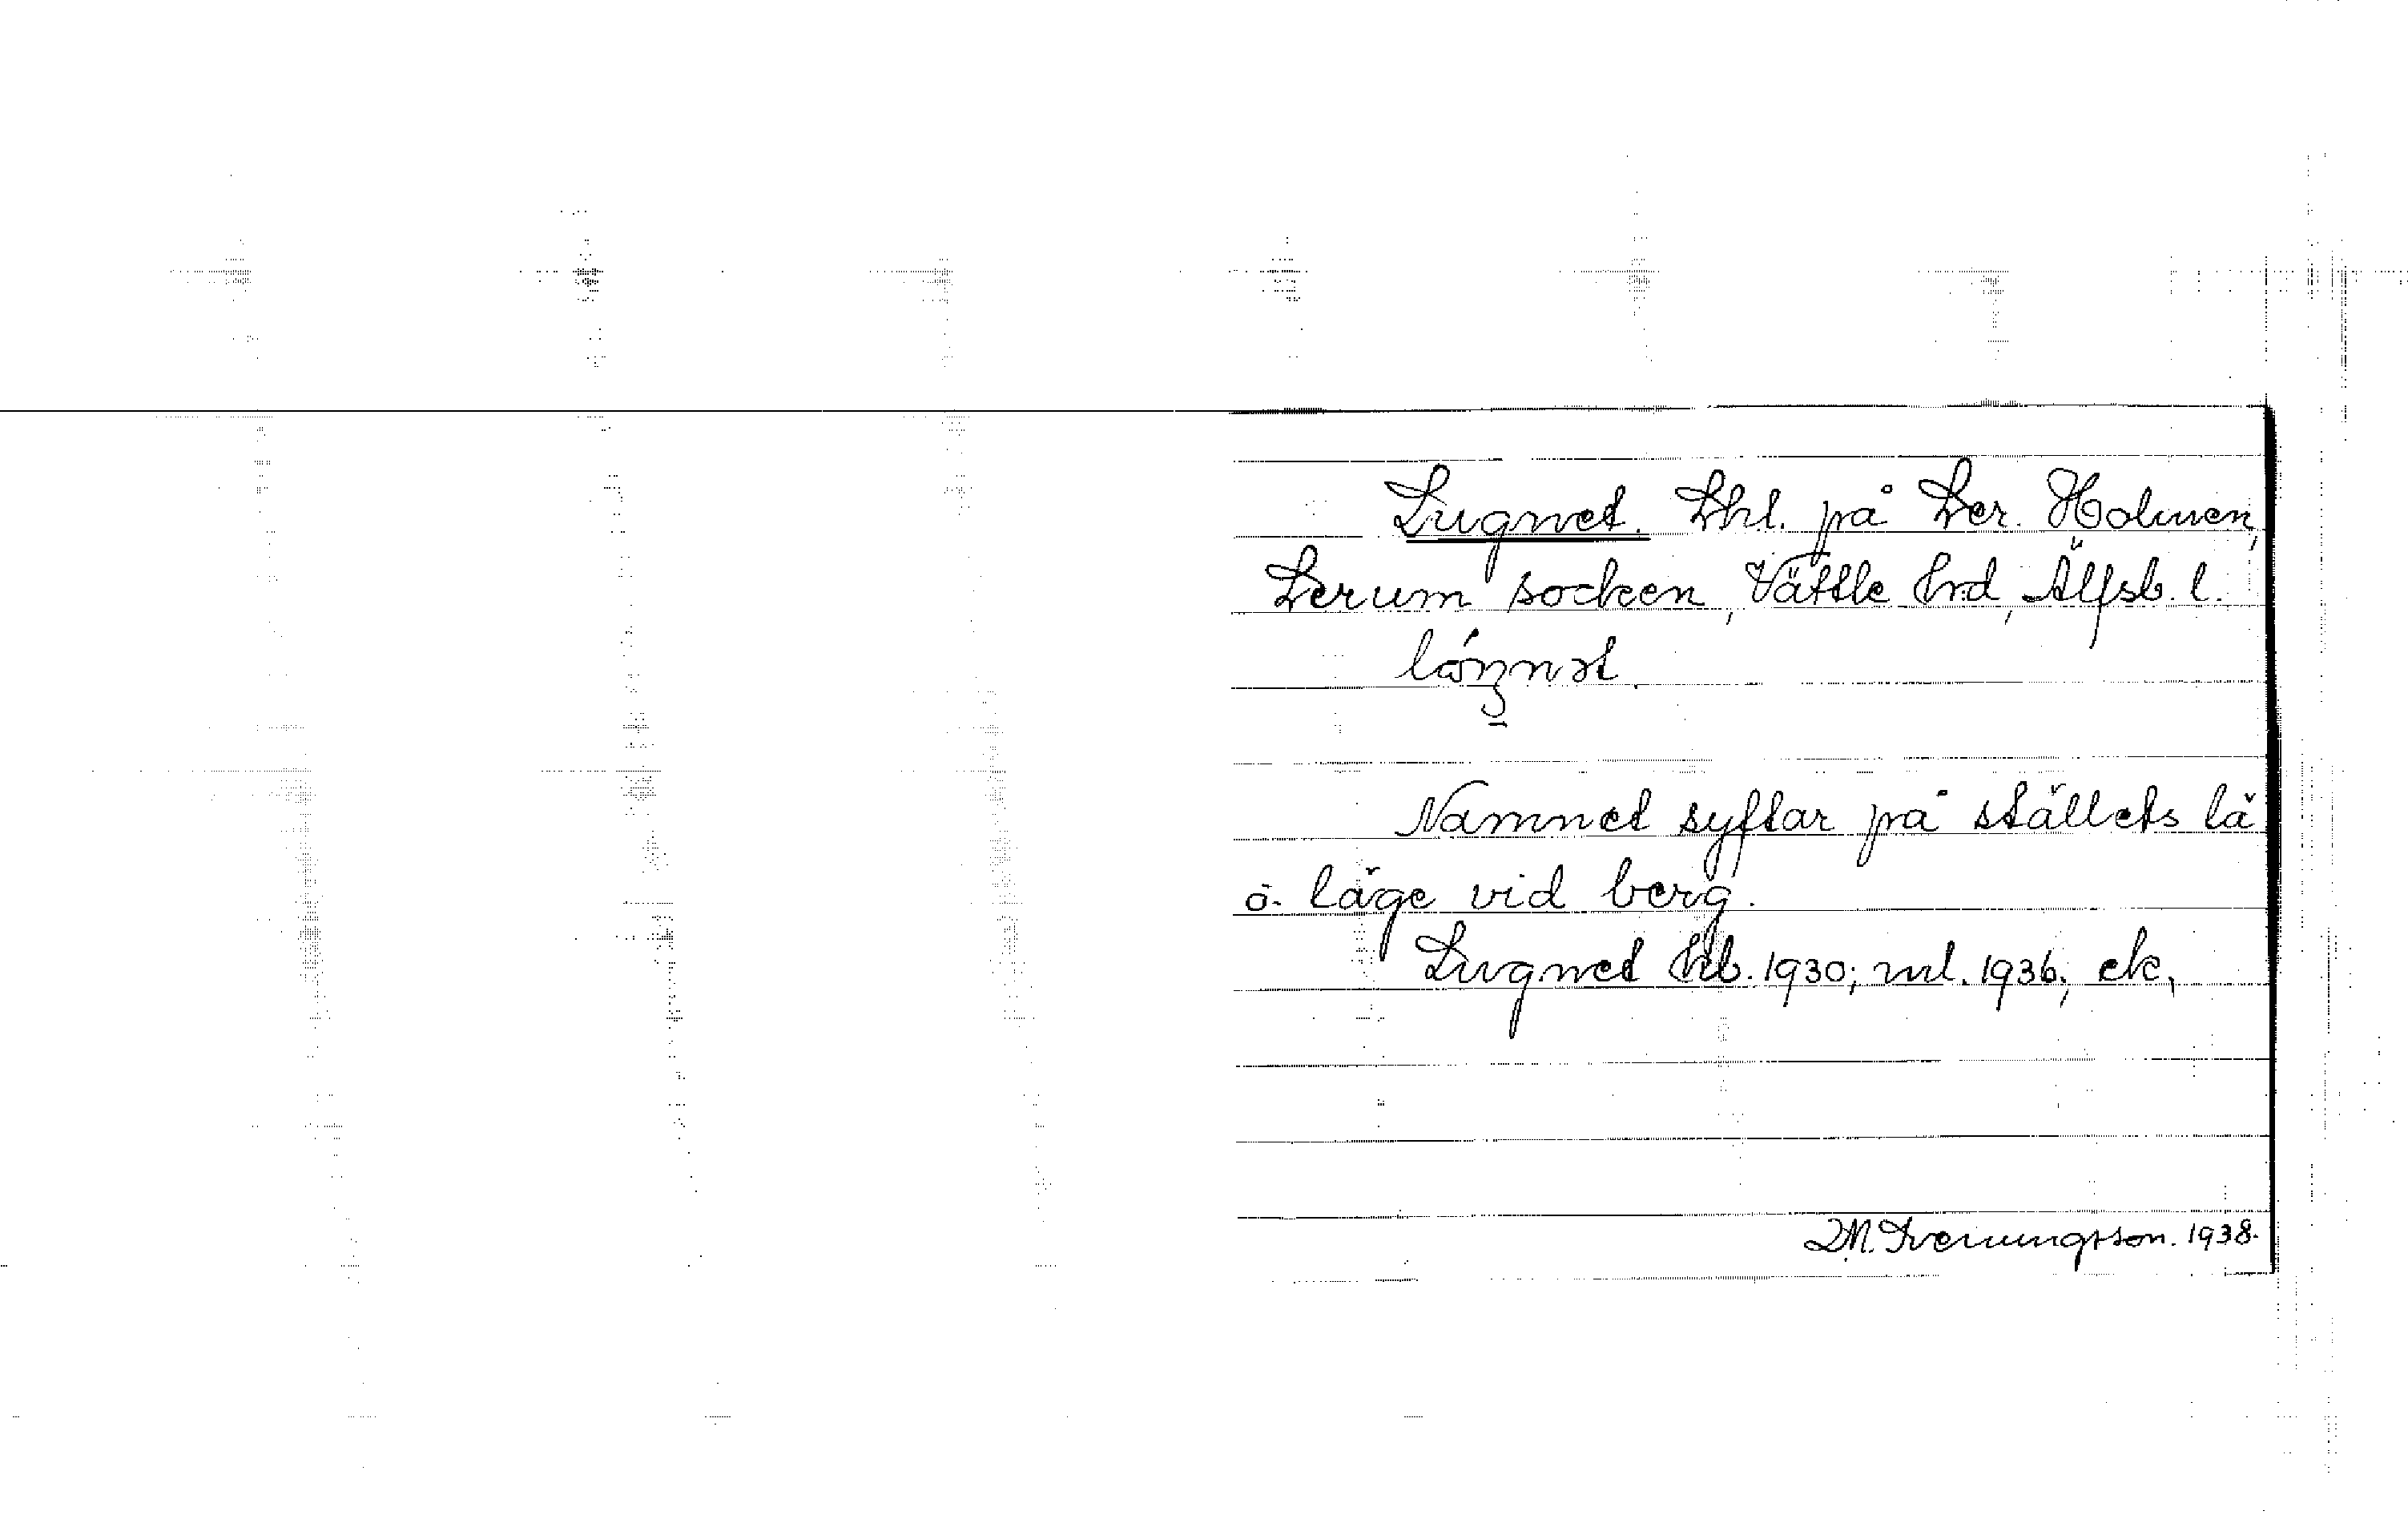 Lugnet. Lht. på Ler. Holmen,
Lerum socken, Vättle hrd, Älfsb. l.
Namnet syftar på ställets lä
o. läge vid berg.
Lugnet hfb. 1930; ml. 1936; etc,
D.M. Svenungsson. 1938.